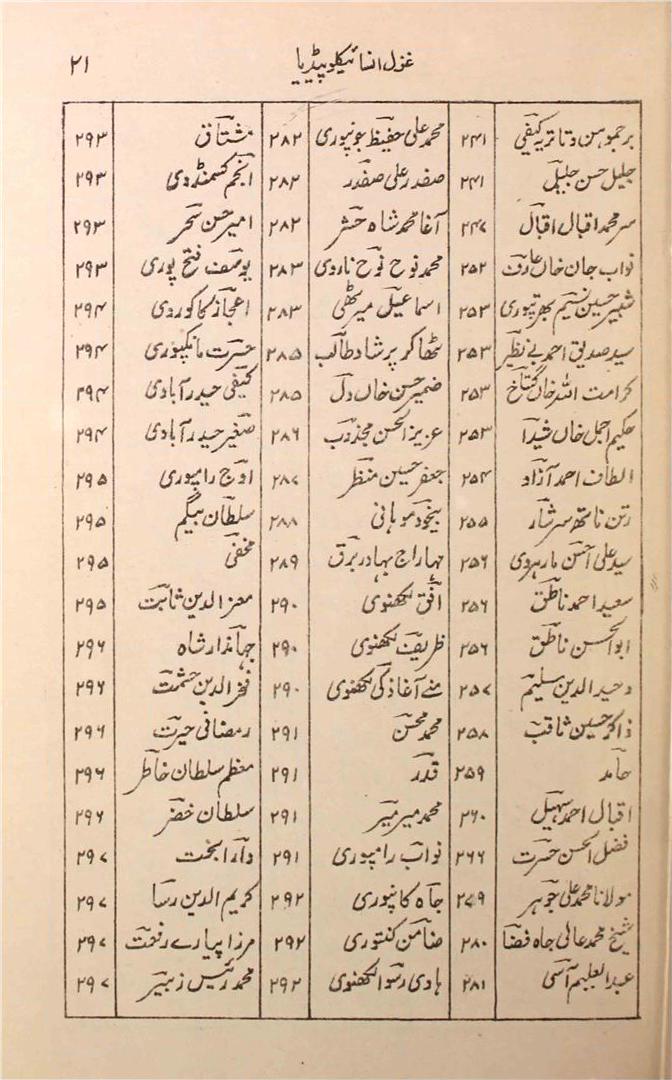 غزل انسائیکلوپیڈیا ۲۱
برجموہن دتاتریہ کیفی ۲۴۱ محمد علی حفیظ جونپوری ۲۸۲ مشتاق ۲۹۳
جلیل حسن جلیل ۲۴۱ صفدر علی صفدر ۲۸۲ انجم کسمنڈوی ۲۹۳
سر محمد اقبال اقبال ۲۴۷ آغا محمد شاہ حشر ۲۸۲ امیر حسن سحر ۲۹۳
نواب جان خاں عارف ۲۵۲ محمد نوح نوح ناروی ۲۸۳ یوسف فتح پوری ۲۹۳
شبیر حسین نسیم بھرتپوری ۲۵۳ اسماعیل میرٹھی ۲۸۳ اعجاز کاکوروی ۲۹۴
سید صدیق احمد بے نظیر ۲۵۳ ٹھاکر پرشاد طالب ۲۸۵ حسرت مانکپوری ۲۹۴
کرامت اللہ خاں گستاخ ۲۵۳ ضمیر حسن خاں دل ۲۸۵ کیفی حیدرآبادی ۲۹۴
حکیم اجمل خاں شیدا ۲۵۳ عزیز الحسن مجذوب ۲۸۶ صغیر حیدرآبادی ۲۹۴
الطاف احمد آزاد ۲۵۴ جعفر حسین منظر ۲۸۷ اوج رامپوری ۲۹۵
رتن ناتھ سرشار ۲۵۵ بیخود موہانی ۲۸۸ سلطان بیگم ۲۹۵
سید علی احسن مارہروی ۲۵۶ مہاراج بہادر برق ۲۸۹ مخفی ۲۹۵
سعید احمد ناطق ۲۵۶ افق لکھنوی ۲۹۰ معز الدین ثابت ۲۹۵
ابوالحسن ناطق ۲۵۶ ظریف لکھنوی ۲۹۰ جہاندار شاہ ۲۹۶
وحید الدین سلیم ۲۵۷ منے آغا ذکی لکھنوی ۲۹۰ فخر الدین حشمت ۲۹۶
ذاکر حسین ثاقب ۲۵۸ محمد محسن ۲۹۱ رمضانی حیرت ۲۹۶
حامد ۲۵۹ قدر ۲۹۱ معظم سلطان خاطر ۲۹۶
اقبال احمد سہیل ۲۶۰ محمد میر میر ۲۹۱ سلطان خضر ۲۹۶
فضل الحسن حسرت ۲۶۶ نواب رامپوری ۲۹۱ دارا بخت ۲۹۷
مولانا محمد علی جوہر ۲۷۹ جاہ کانپوری ۲۹۲ کریم الدین رسا ۲۹۷
شیخ محمد عالی جاہ فضا ۲۸۰ ضامن کنتوری ۲۹۲ مرزا پیارے رفعت ۲۹۷
عبدالعلیم آسی ۲۸۱ ہادی رسوا لکھنوی ۲۹۲ محمد رئیس زبیر ۲۹۷